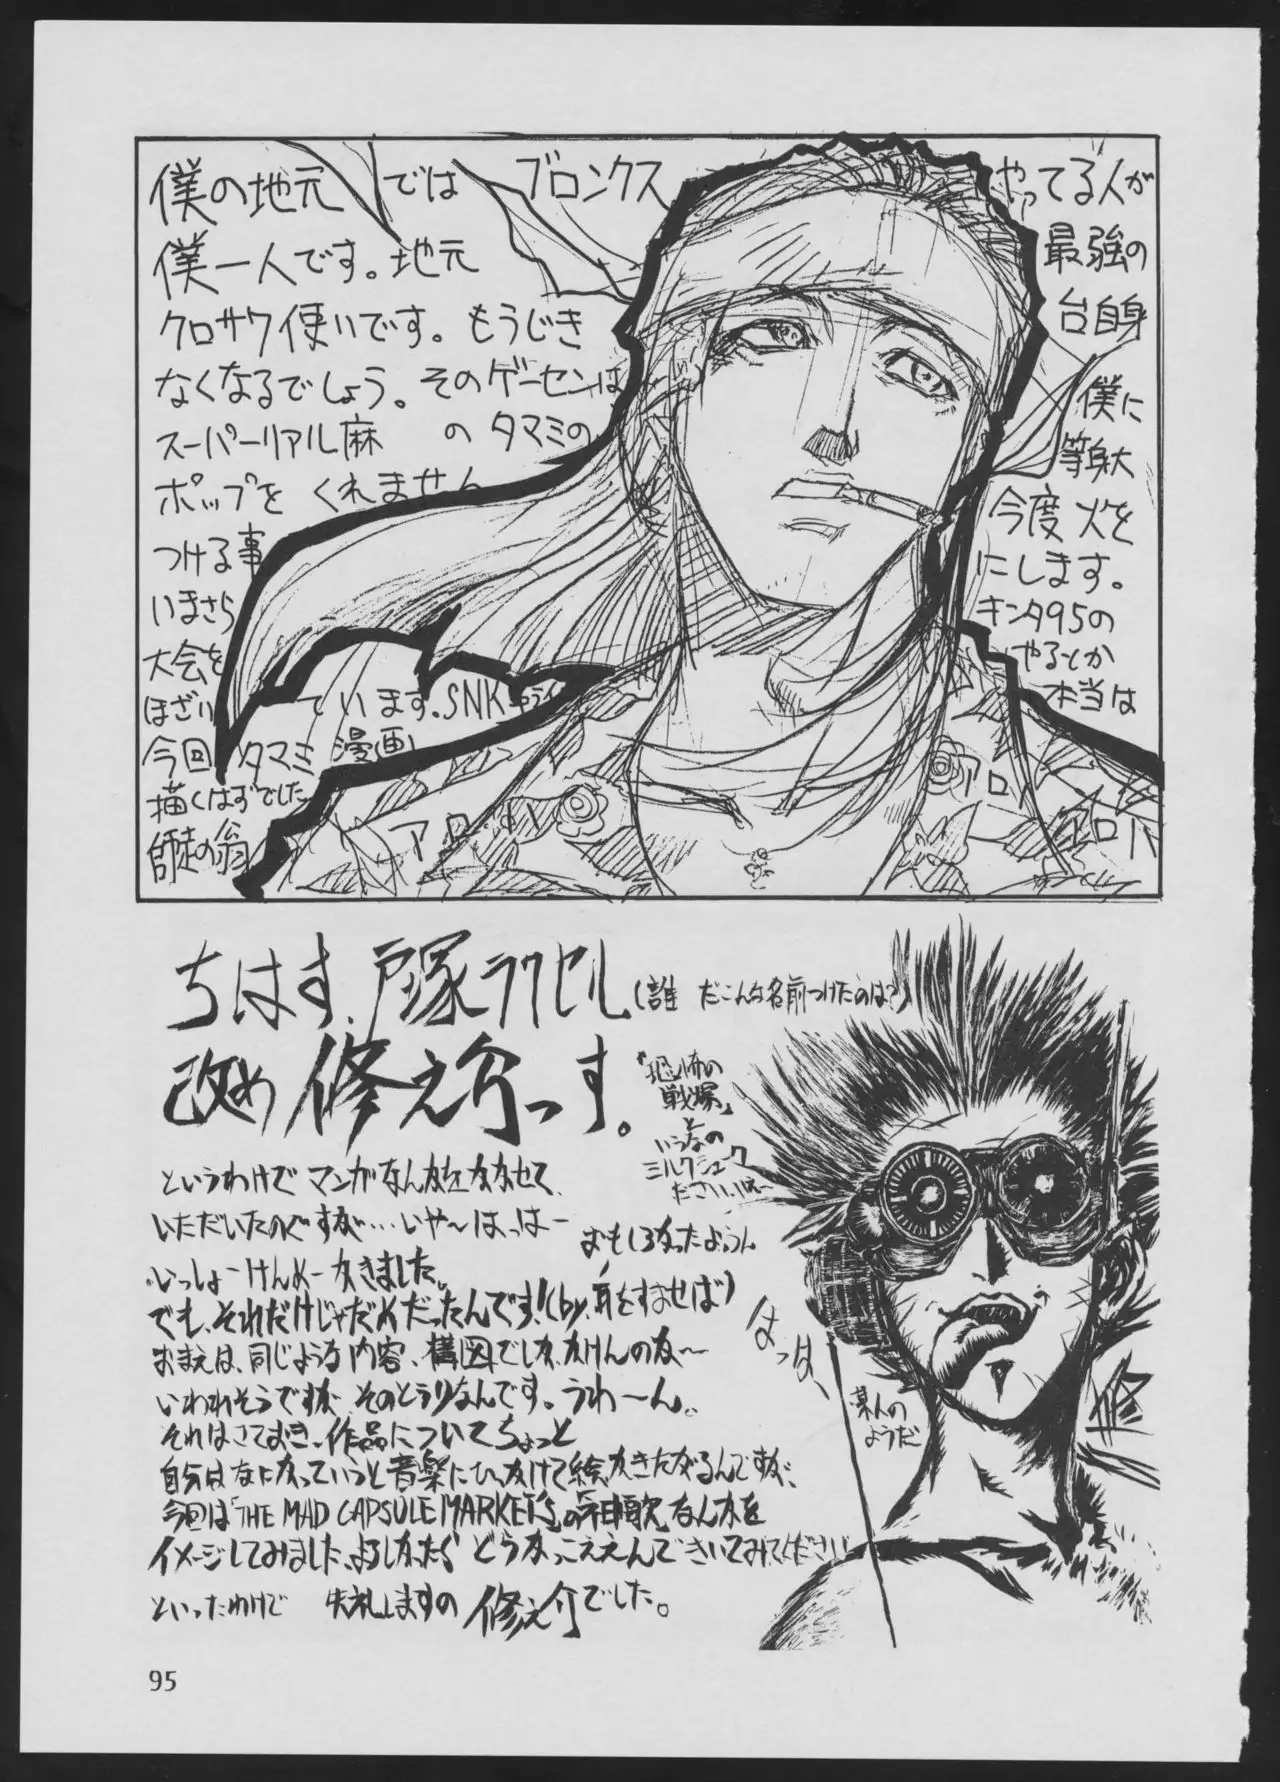 僕の地元では ブロンクス やってる人が
僕一人です。地元 最強の
クロサワ使いです。もうじき 台自身
なくなるでしょう。そのゲーセンは 僕に
スーパーリアル麻 のタマミの 等身大
ポップをくれません 今度火を
つける事 にします。
いまさら キンタ95の
大会を やるとか
ほざい ています。SNK 本当は
今回 タマミ漫画
描くはずでした
師徒の翁
アロ
アロ
アロハ
ちはす、戸塚ラクセル(誰だこんな名前つけたのは?)
改め修之介っす。
『恐怖の
戦塚』
と
いう名の
ミルクシェーク
ださいはー
というわけでマンガなんかをかかせて、
いただいたのですが…いや〜はっはー
おもしろかったよううん
いっしょーけんめーかきました。
でも、それだけじゃだめだったんです!(by.耳をすませば)
おまえは、同じような内容、構図でしか、かけんのか〜
いわれそうですが、そのとうりなんです。うわ〜ん。
それはさておき、作品についてちょっと
自分はなにかっていうと音楽にひっかけて絵かきたがるんですが、
今回は「THE MAD CAPSULE MARKET'S」の「神歌」なんかを
イメージしてみました、よろしかったら どうかっこええんできいてみてください
といったわけで 失礼しますの 修之介でした。
はっは、
某人の
ようだ
修
95